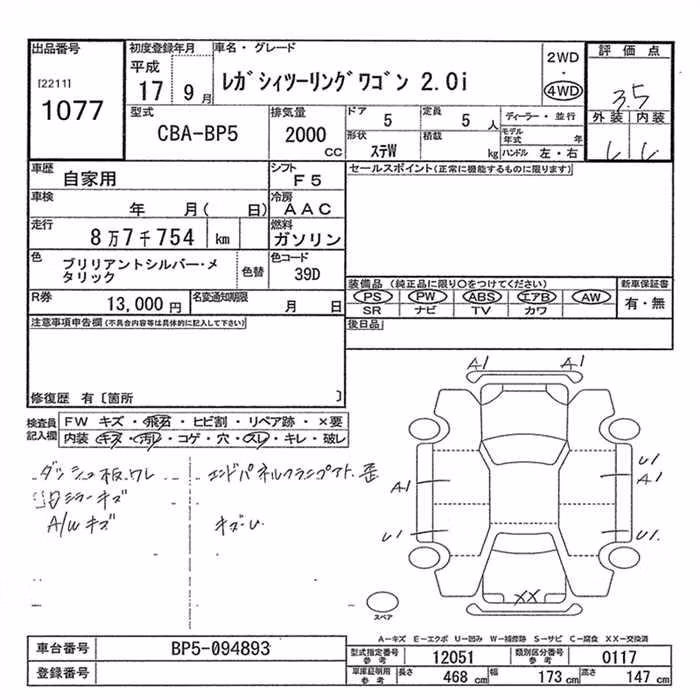 出品番号 初度登録年月 車名・グレード 評価点
[2211] 平成 2WD
1077 17 9月 レガシィツーリングワゴン 2.0i ・ 4WD 3.5
型式 排気量 ドア 5 定員 5 人 ディーラー・並行 外装 内装
CBA-BP5 2000 cc 形状 ステW 積載 kg モデル年式 年 ハンドル 左・右
車歴 自家用 シフト F5 セールスポイント(正常に機能するものに限ります)
車検 年 月( 日) 冷房 AAC
走行 8万7千754 km 燃料 ガソリン
色 ブリリアントシルバー・メタリック 色替 色コード 39D
装備品 (純正品に限り○をつけてください) 新車保証書
R券 13,000円 名変通知期限 月 日 PS PW ABS エアB AW 有・無
SR ナビ TV カワ
注意事項申告欄(不具合内容等は具体的に記入して下さい) 後日品
修復歴 有〔箇所 〕
検査員記入欄 FW キズ・飛石・ヒビ割・リペア跡・×要
内装 キズ・汚レ・コゲ・穴・スレ・キレ・破レ
A1 A1
ダッシュ板ワレ
キズ
A/W キズ
A1 U1 A1
U1 U1
XX
スペア
A―キズ E―エクボ U―凹み W―補修跡 S―サビ C―腐食 XX―交換済
車台番号 BP5-094893 型式指定番号 参考 12051 類別区分番号 参考 0117
登録番号 車庫証明用 参考 長さ 468 cm 幅 173 cm 高さ 147 cm